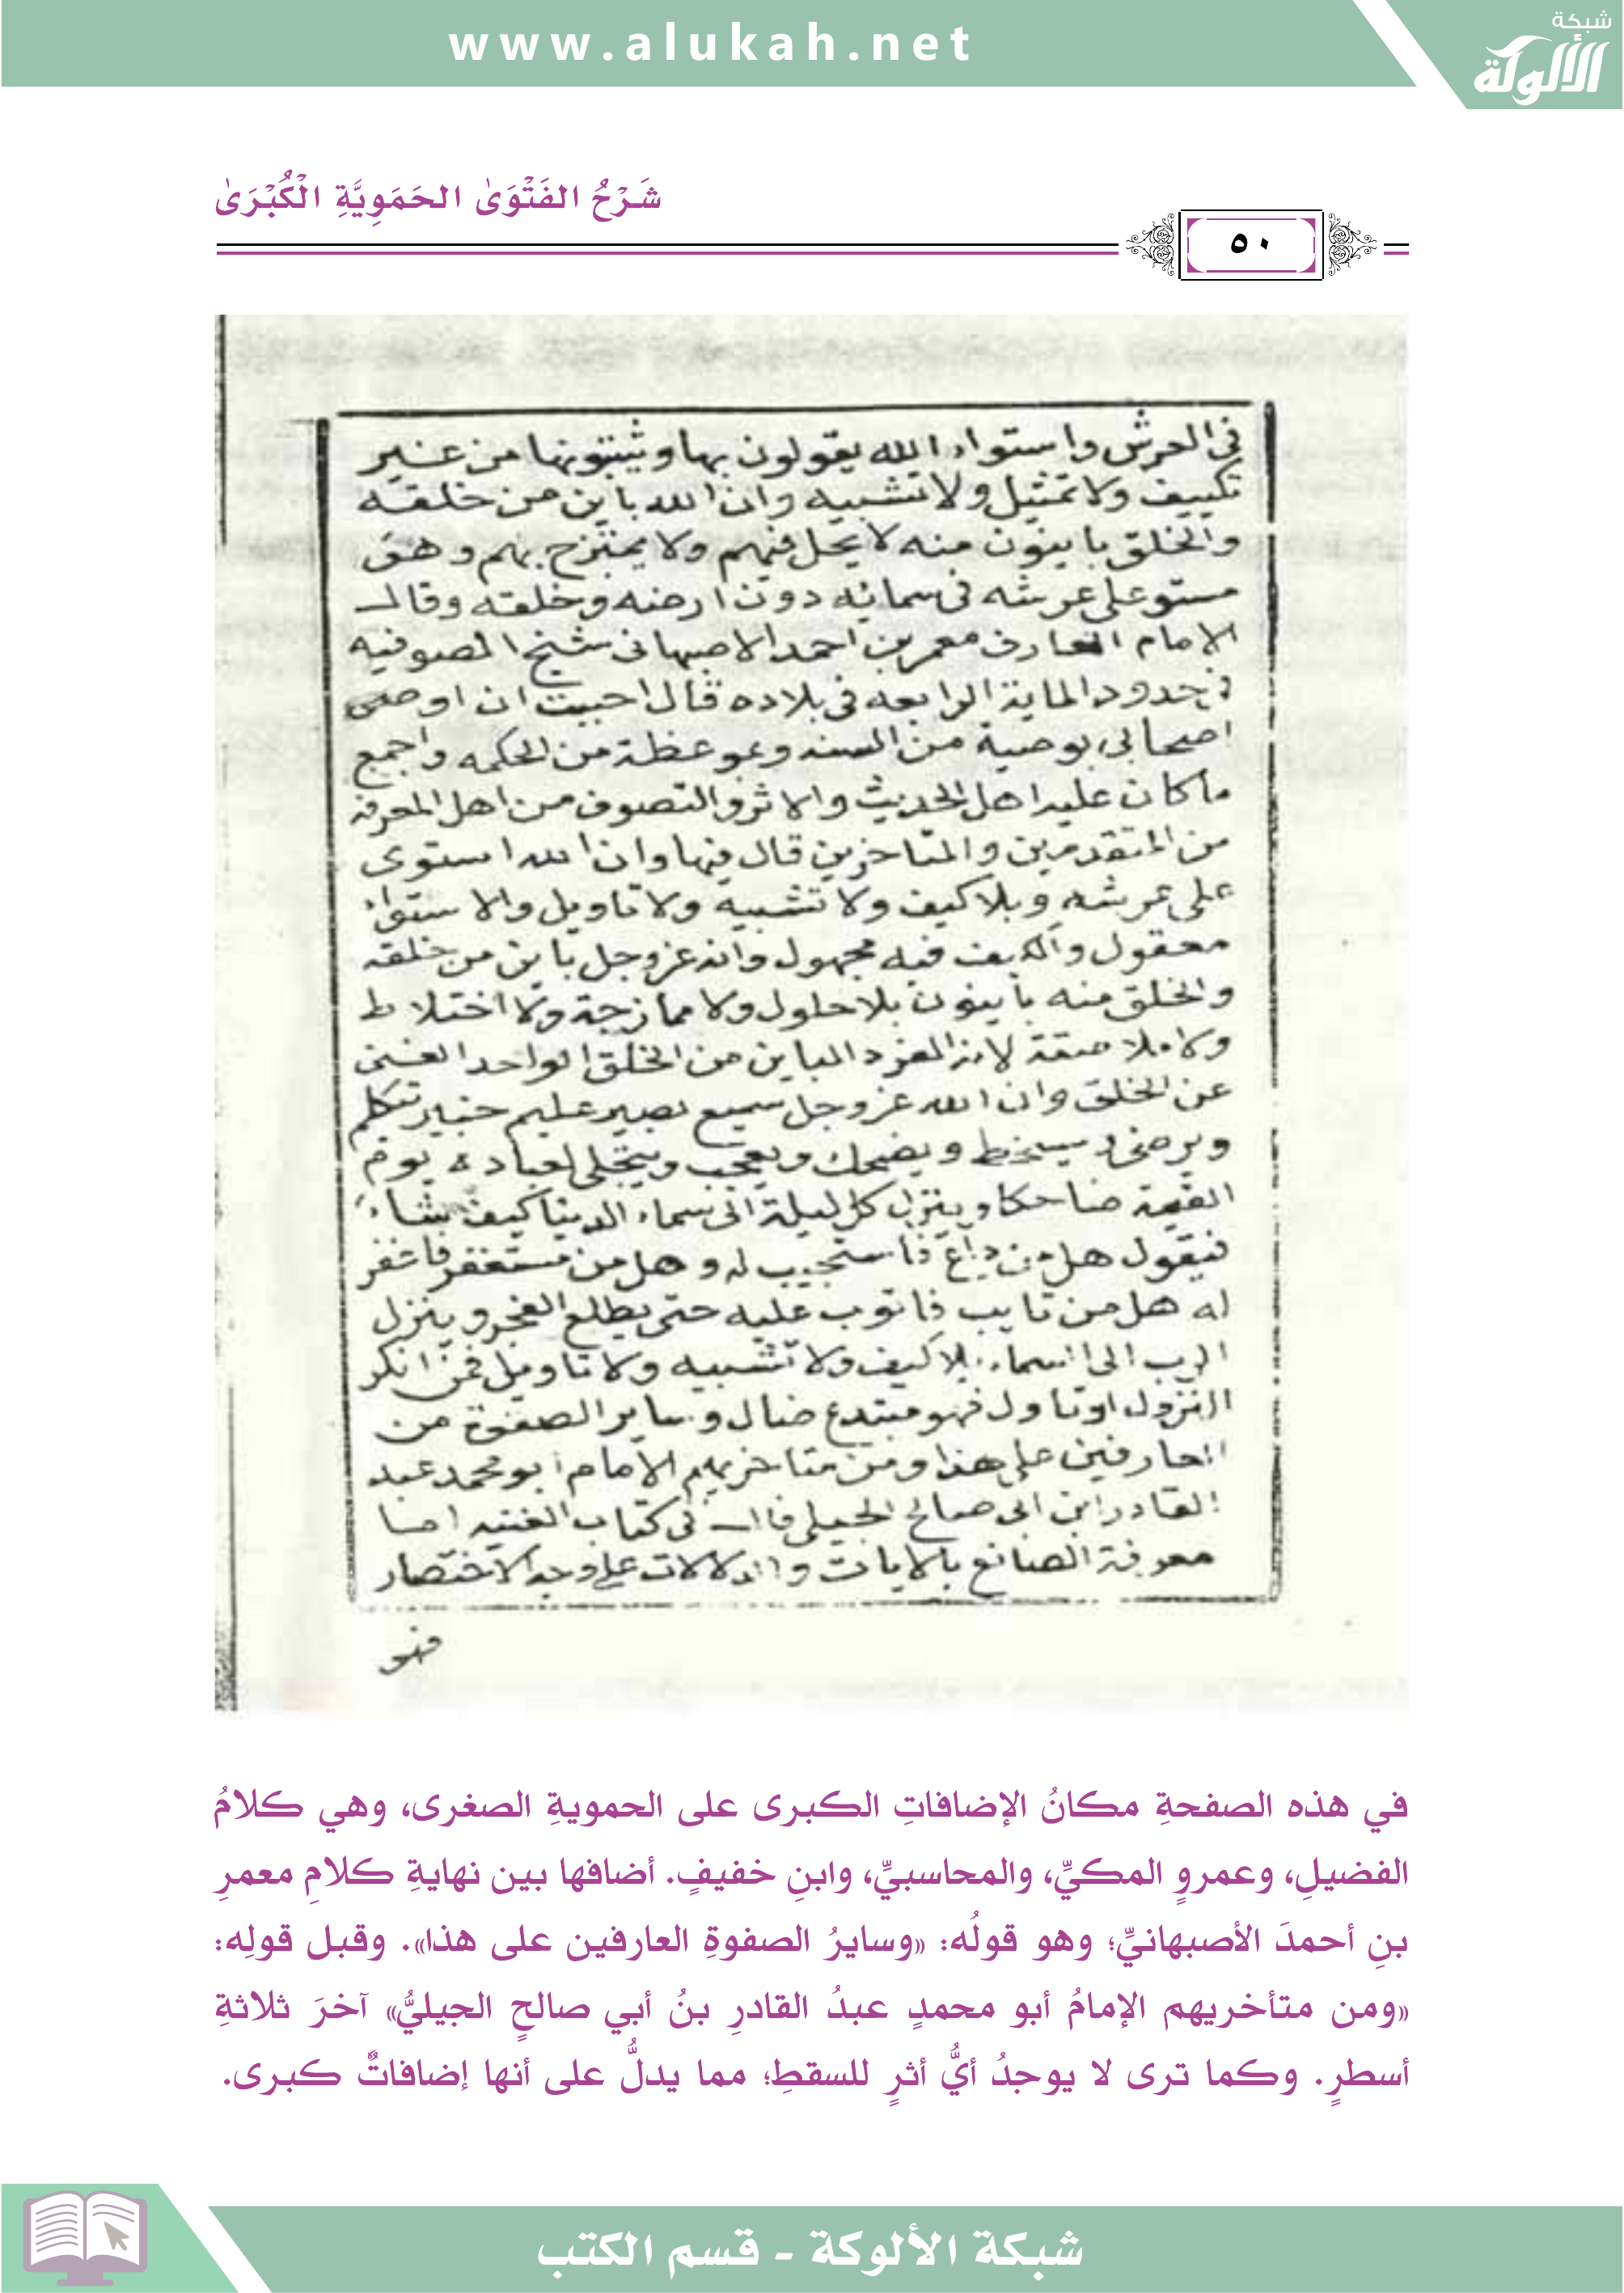 www.alukah.net
شبكة
الألوكة
شَرْحُ الفَتْوَىٰ الحَمَوِيَّةِ الْكُبْرَىٰ
٥٠
في العرش واستواء الله يقولون بها ويثبتونها من غير
تكييف ولا تمثيل ولا تشبيه وان الله باين من خلقه
والخلق باينون منه لا يحل فيهم ولا يمتزج بهم وهو
مستو على عرشه في سمائه دون ارضه وخلقه وقال
الامام العارف معمر بن احمد الاصبهاني شيخ الصوفيه
في حدود الماية الرابعه في بلاده قال احببت ان اوصي
اصحابي بوصية من السنه وموعظة من الحكمه واجمع
ما كان عليه اهل الحديث والاثر والتصوف من اهل المعرفه
من المتقدمين والمتاخرين قال فيها وان الله استوى
على عرشه وبلا كيف ولا تشبيه ولا تاويل والاستواء
معقول والكيف فيه مجهول وانه عز وجل باين من خلقه
والخلق منه باينون بلا حلول ولا ممازجة ولا اختلاط
ولا ملاصقة لانه الفرد المباين من الخلق الواحد الغني
عن الخلق وان الله عز وجل سميع بصير عليم خبير تتكلم
ويرضى ويسخط ويضحك ويعجب ويتجلى لعباده يوم
القيمة ضاحكا وينزل كل ليلة الى سماء الدينا كيف يشاء
فيقول هل من داع فاستجيب له وهل من مستغفر فاغفر
له هل من تايب فاتوب عليه حتى يطلع الفجر وينزل
الرب الى السماء بلا كيف ولا تشبيه ولا تاويل فمن انكر
النزول او تاول فهو مبتدع ضال وساير الصفوة من
العارفين على هذا ومن متاخريهم الامام ابو محمد عبد
القادر ابن ابي صالح الجيلي قال في كتاب الغنيه اما
معرفة الصانع بالايات والدلالات على وجه الاختصار
فهو
في هذه الصفحةِ مكانُ الإضافاتِ الكبرى على الحمويةِ الصغرى، وهي كلامُ
الفضيلِ، وعمروٍ المكيِّ، والمحاسبيِّ، وابنِ خفيفٍ. أضافها بين نهايةِ كلامِ معمرِ
بنِ أحمدَ الأصبهانيِّ؛ وهو قولُه: «وسايرُ الصفوةِ العارفين على هذا». وقبل قولِه:
«ومن متأخريهم الإمامُ أبو محمدٍ عبدُ القادرِ بنُ أبي صالحٍ الجيليُّ» آخرَ ثلاثةِ
أسطرٍ. وكما ترى لا يوجدُ أيُّ أثرٍ للسقطِ؛ مما يدلُّ على أنها إضافاتٌ كبرى.
شبكة الألوكة - قسم الكتب